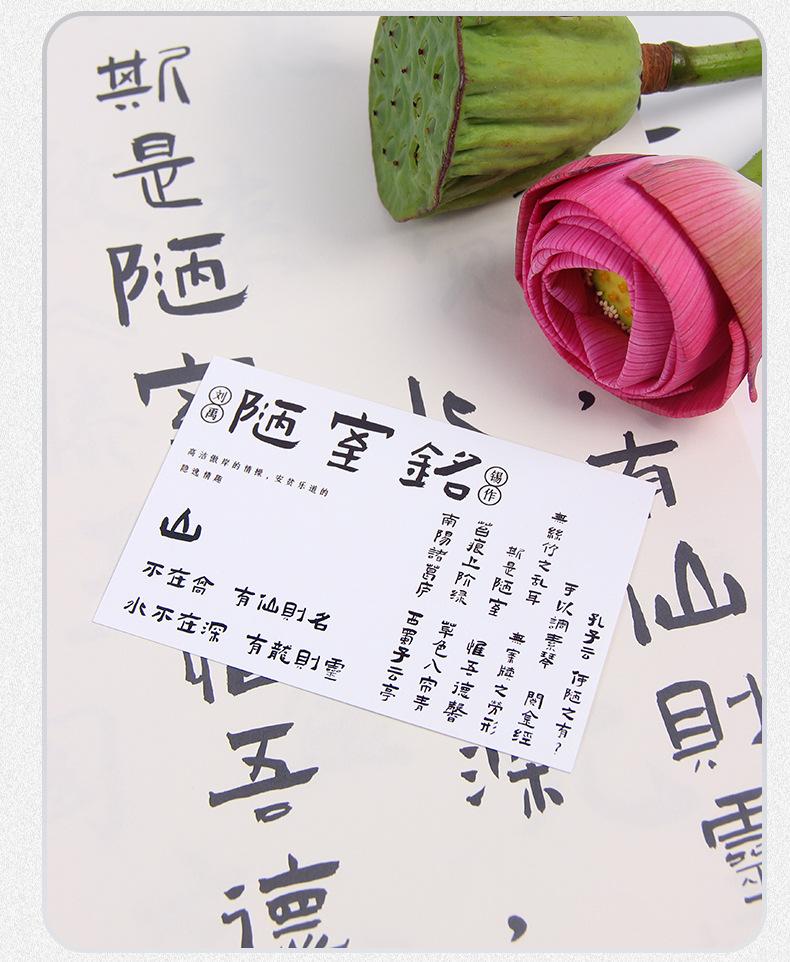 斯是陋室
惟吾德
深，
，有仙則靈
刘禹
陋室銘
锡作
高洁傲岸的情操，安贫乐道的
隐逸情趣
山
不在高 有仙則名
水不在深 有龍則靈
孔子云 何陋之有？
可以調素琴 閱金經
無絲竹之乱耳 無案牘之勞形
斯是陋室 惟吾德馨
苔痕上阶绿 草色入帘青
南陽諸葛庐 西蜀子云亭